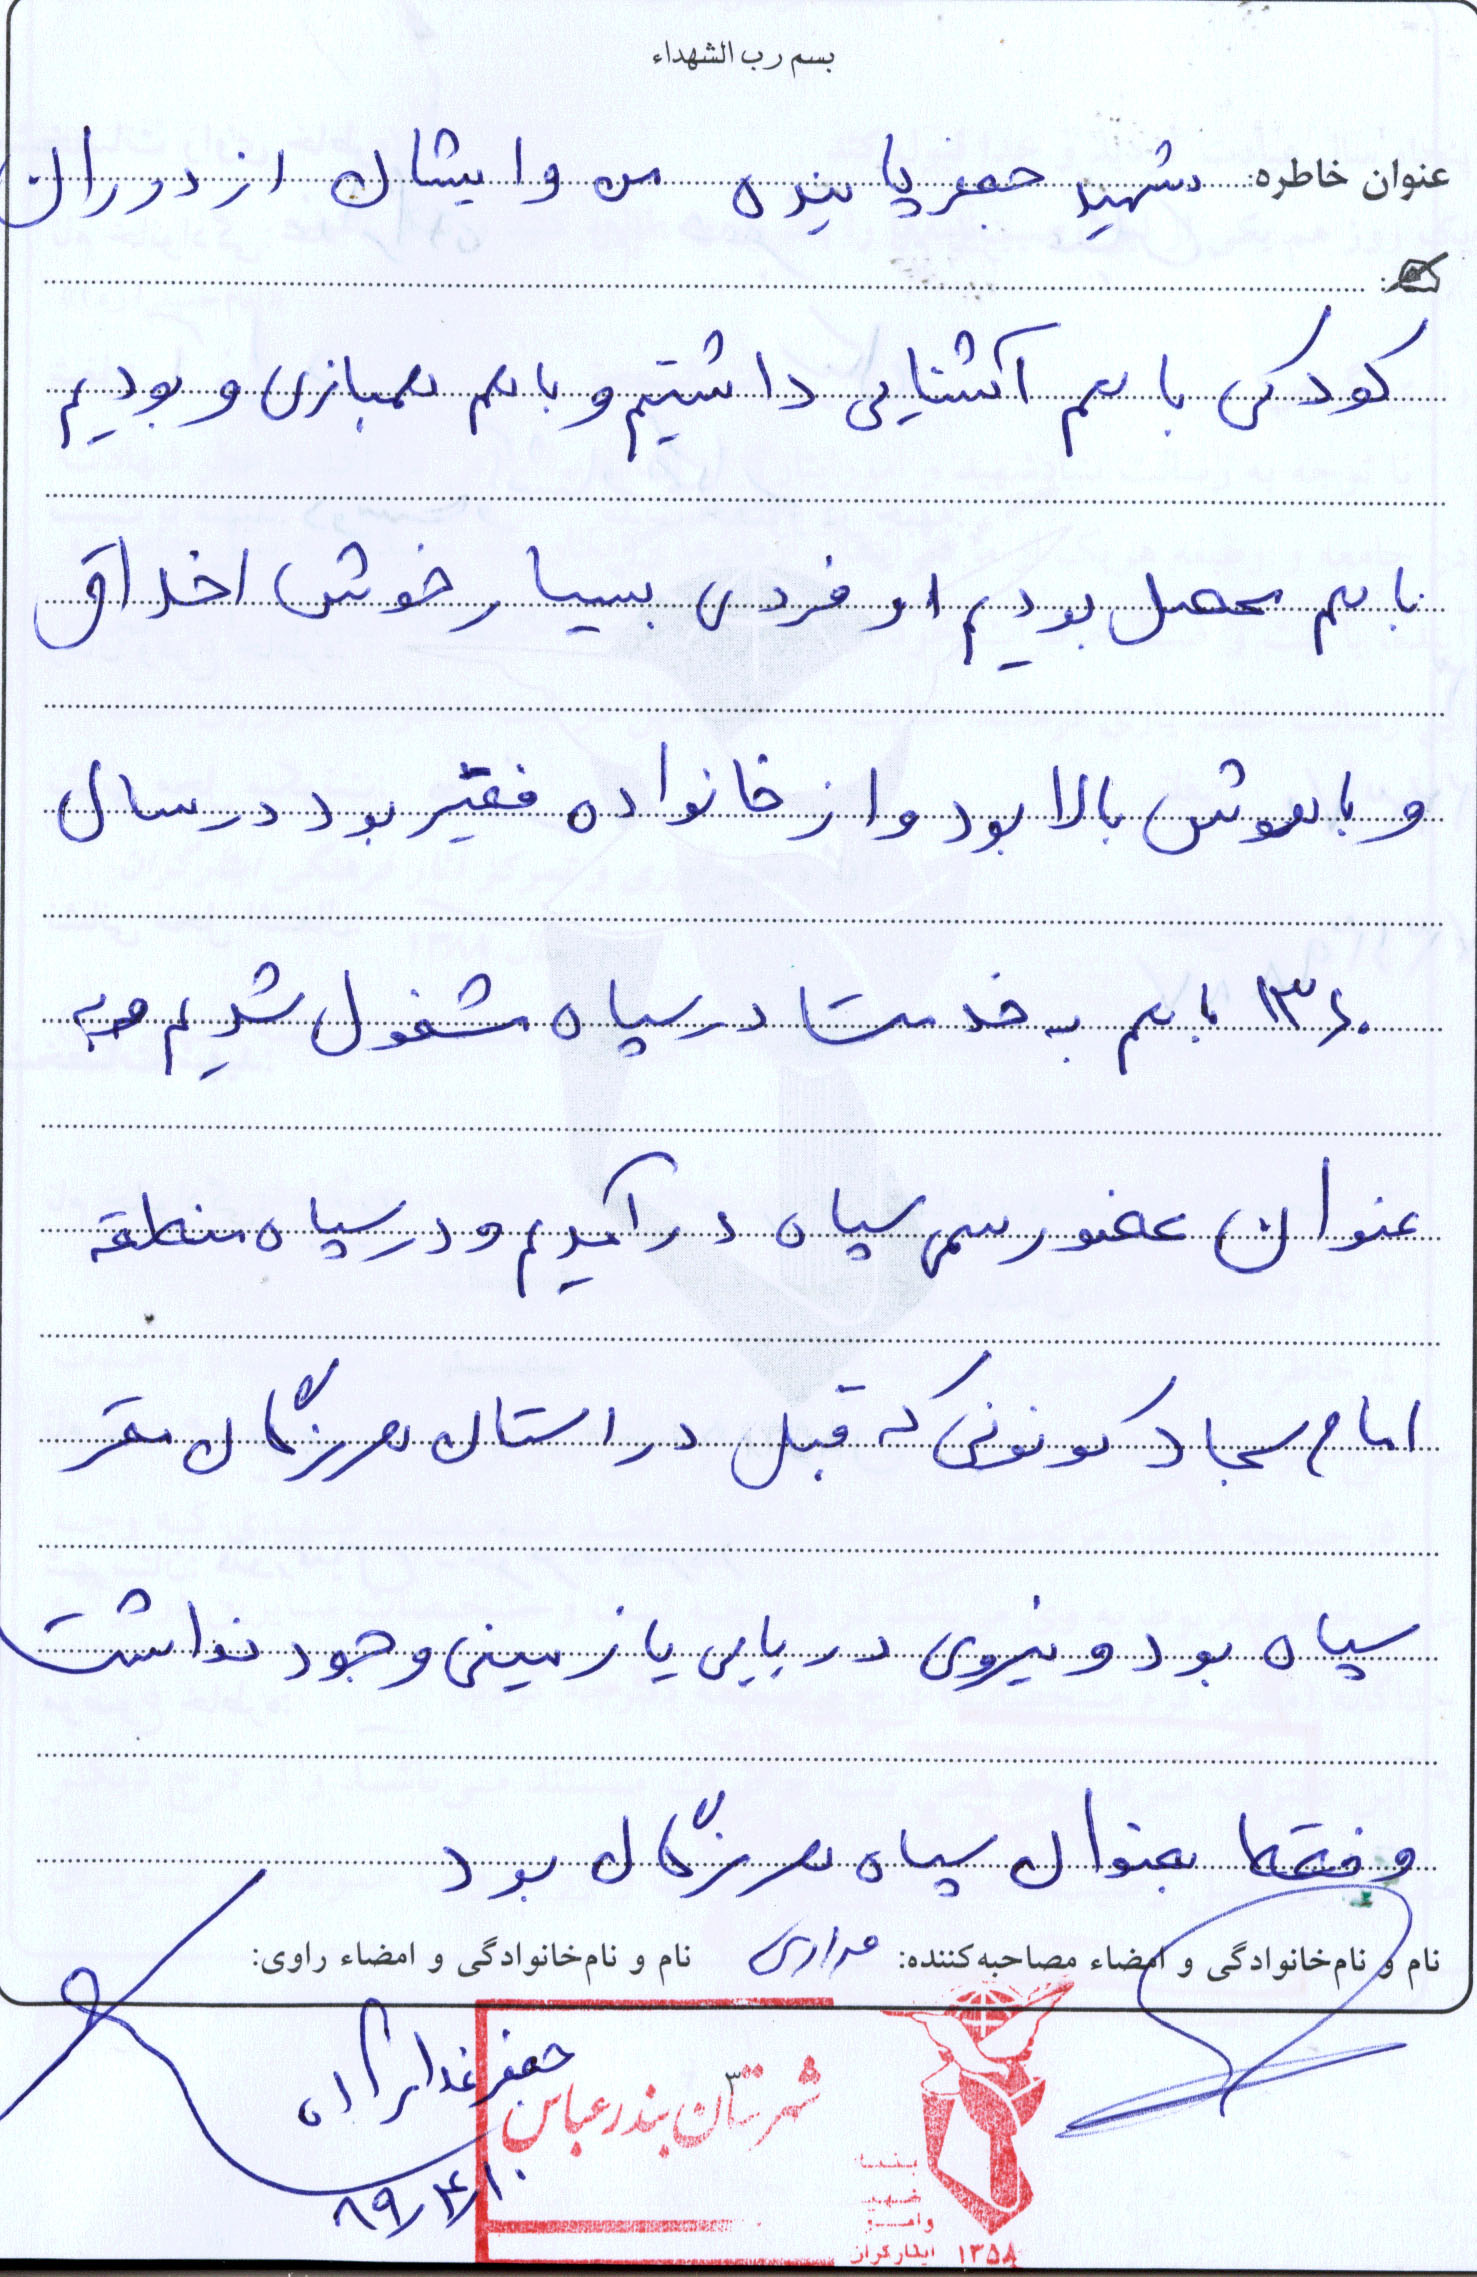 بسم رب الشهداء
عنوان خاطره: شهید جعفر پاینده من و ایشان از دوران
کودکی با هم آشنایی داشتیم و با هم همبازی و بودیم
با هم محصل بودیم او فردی بسیار خوش اخلاق
و با هوش بالا بود و از خانواده فقیر بود در سال
۱۳۶۰ با هم به خدمت در سپاه مشغول شدیم و به
عنوان عضو رسمی سپاه در آمدیم و در سپاه منطقه
امام سجاد کونونی که قبل در استان هرمزگان مقر
سپاه بود و نیروی دریایی یا زمینی وجود نداشت
و فقط بعنوان سپاه هرمزگان بود
نام و نام‌خانوادگی و امضاء مصاحبه‌کننده: مرادی نام و نام‌خانوادگی و امضاء راوی:
جعفر
۳
شهرستان بندرعباس
۸۹/۴/۱۰
بنیاد
شهید
و امور
ایثارگران ۱۳۵۸